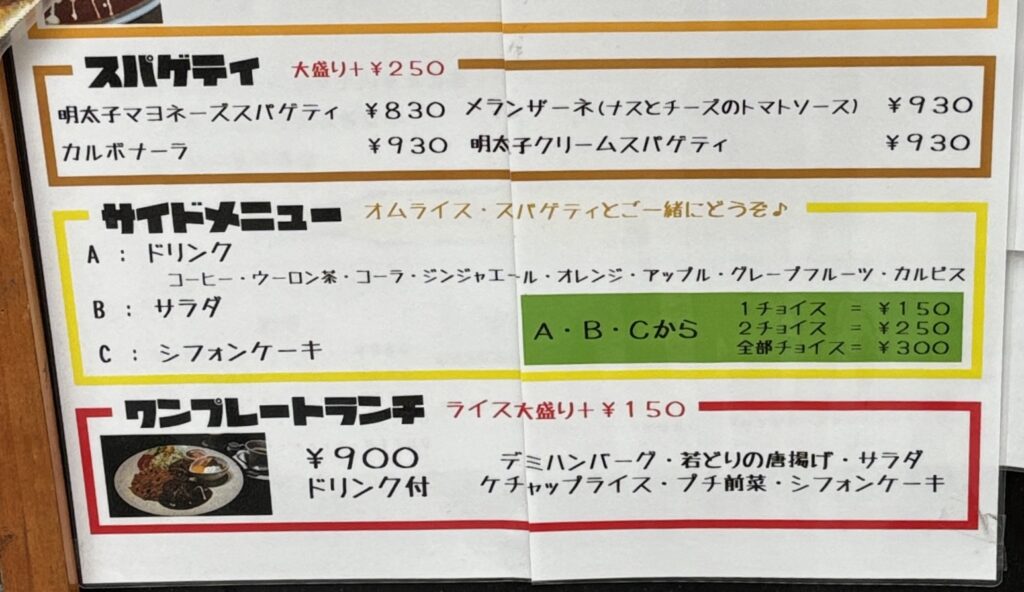 スパゲティ 大盛り+¥250
明太子マヨネーズスパゲティ ¥830 メランザーネ(ナスとチーズのトマトソース) ¥930
カルボナーラ ¥930 明太子クリームスパゲティ ¥930
サイドメニュー オムライス・スパゲティとご一緒にどうぞ♪
A : ドリンク
コーヒー・ウーロン茶・コーラ・ジンジャエール・オレンジ・アップル・グレープフルーツ・カルピス
B : サラダ
C : シフォンケーキ
A・B・Cから
1チョイス = ¥150
2チョイス = ¥250
全部チョイス= ¥300
ワンプレートランチ ライス大盛り+¥150
¥900
ドリンク付
デミハンバーグ・若どりの唐揚げ・サラダ
ケチャップライス・プチ前菜・シフォンケーキ